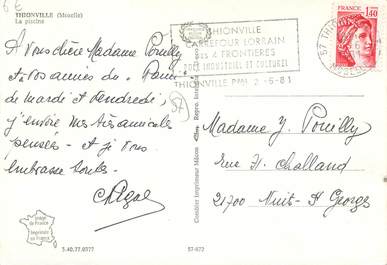 6€
THIONVILLE (Moselle)
La piscine
THIONVILLE
CARREFOUR LORRAIN
DES 4 FRONTIERES
PÔLE INDUSTRIEL ET CULTUREL
THIONVILLE PPAL 2-5-81
1,40
57 THIONVILLE
MOSELLE
A vous chère Madame Pouilly
et à vos amies du
de mardi et vendredi,
j'envoie mes très amicales
pensées - et je vous
embrasse toutes.
57
Madame Y. Pouilly
Rue H. Challand
21700 Nuit-St Georges
Combier Imprimeur Mâcon
Image de France
Imprimée en France
S.40.77.0377
57-672